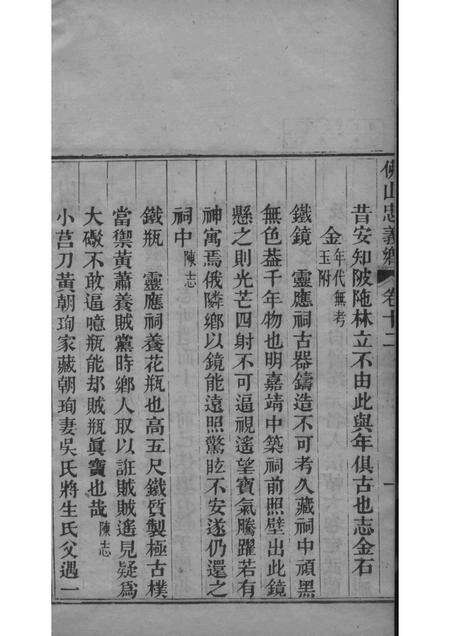 佛山忠義鄉 卷十二 一
昔安知陂陁林立不由此與年俱古也志金石
金年代無考玉附
鐵鏡 靈應祠古器鑄造不可考久藏祠中頑黑
無色葢千年物也明嘉靖中築祠前照壁出此鏡
懸之則光芒四射不可逼視遙望寶氣騰躍若有
神寓焉俄隣鄉以鏡能遠照驚眩不安遂仍還之
祠中陳志
鐵瓶 靈應祠養花瓶也高五尺鐵質製極古樸
當禦黃蕭養賊黨時鄉人取以誑賊賊遙見疑爲
大礮不敢逼噫瓶能却賊瓶眞寶也哉陳志
小莒刀黃朝珣家藏朝珣妻吳氏將生氏父遇一